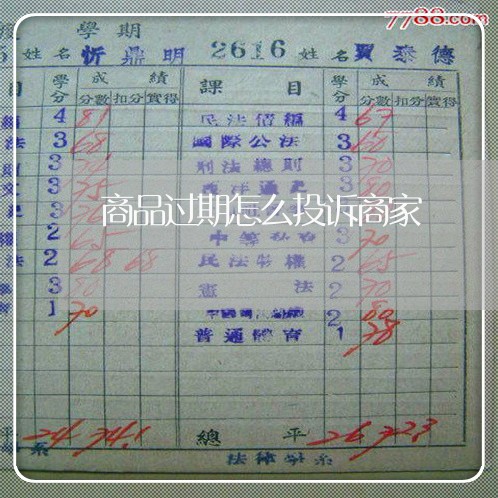 7788.com
學期
姓名 忻鼎明 2616 姓名 賈泰德
目 學分 成績 分數 扣分 實得 課目 學分 成績 分數 扣分 實得
4 81 民法債編 4 67
法 3 68 國際公法 3 60
3 刑法總則 3 70
3 75 西洋通史 3
商品过期怎么投诉商家
2 65 3 70
法 2 68 68 民法物權 2 65
3 80 憲法 2 70
1 70 2 80
普通體育 1 78
平 24 74.1 總平 26 72.3
系 法律學系